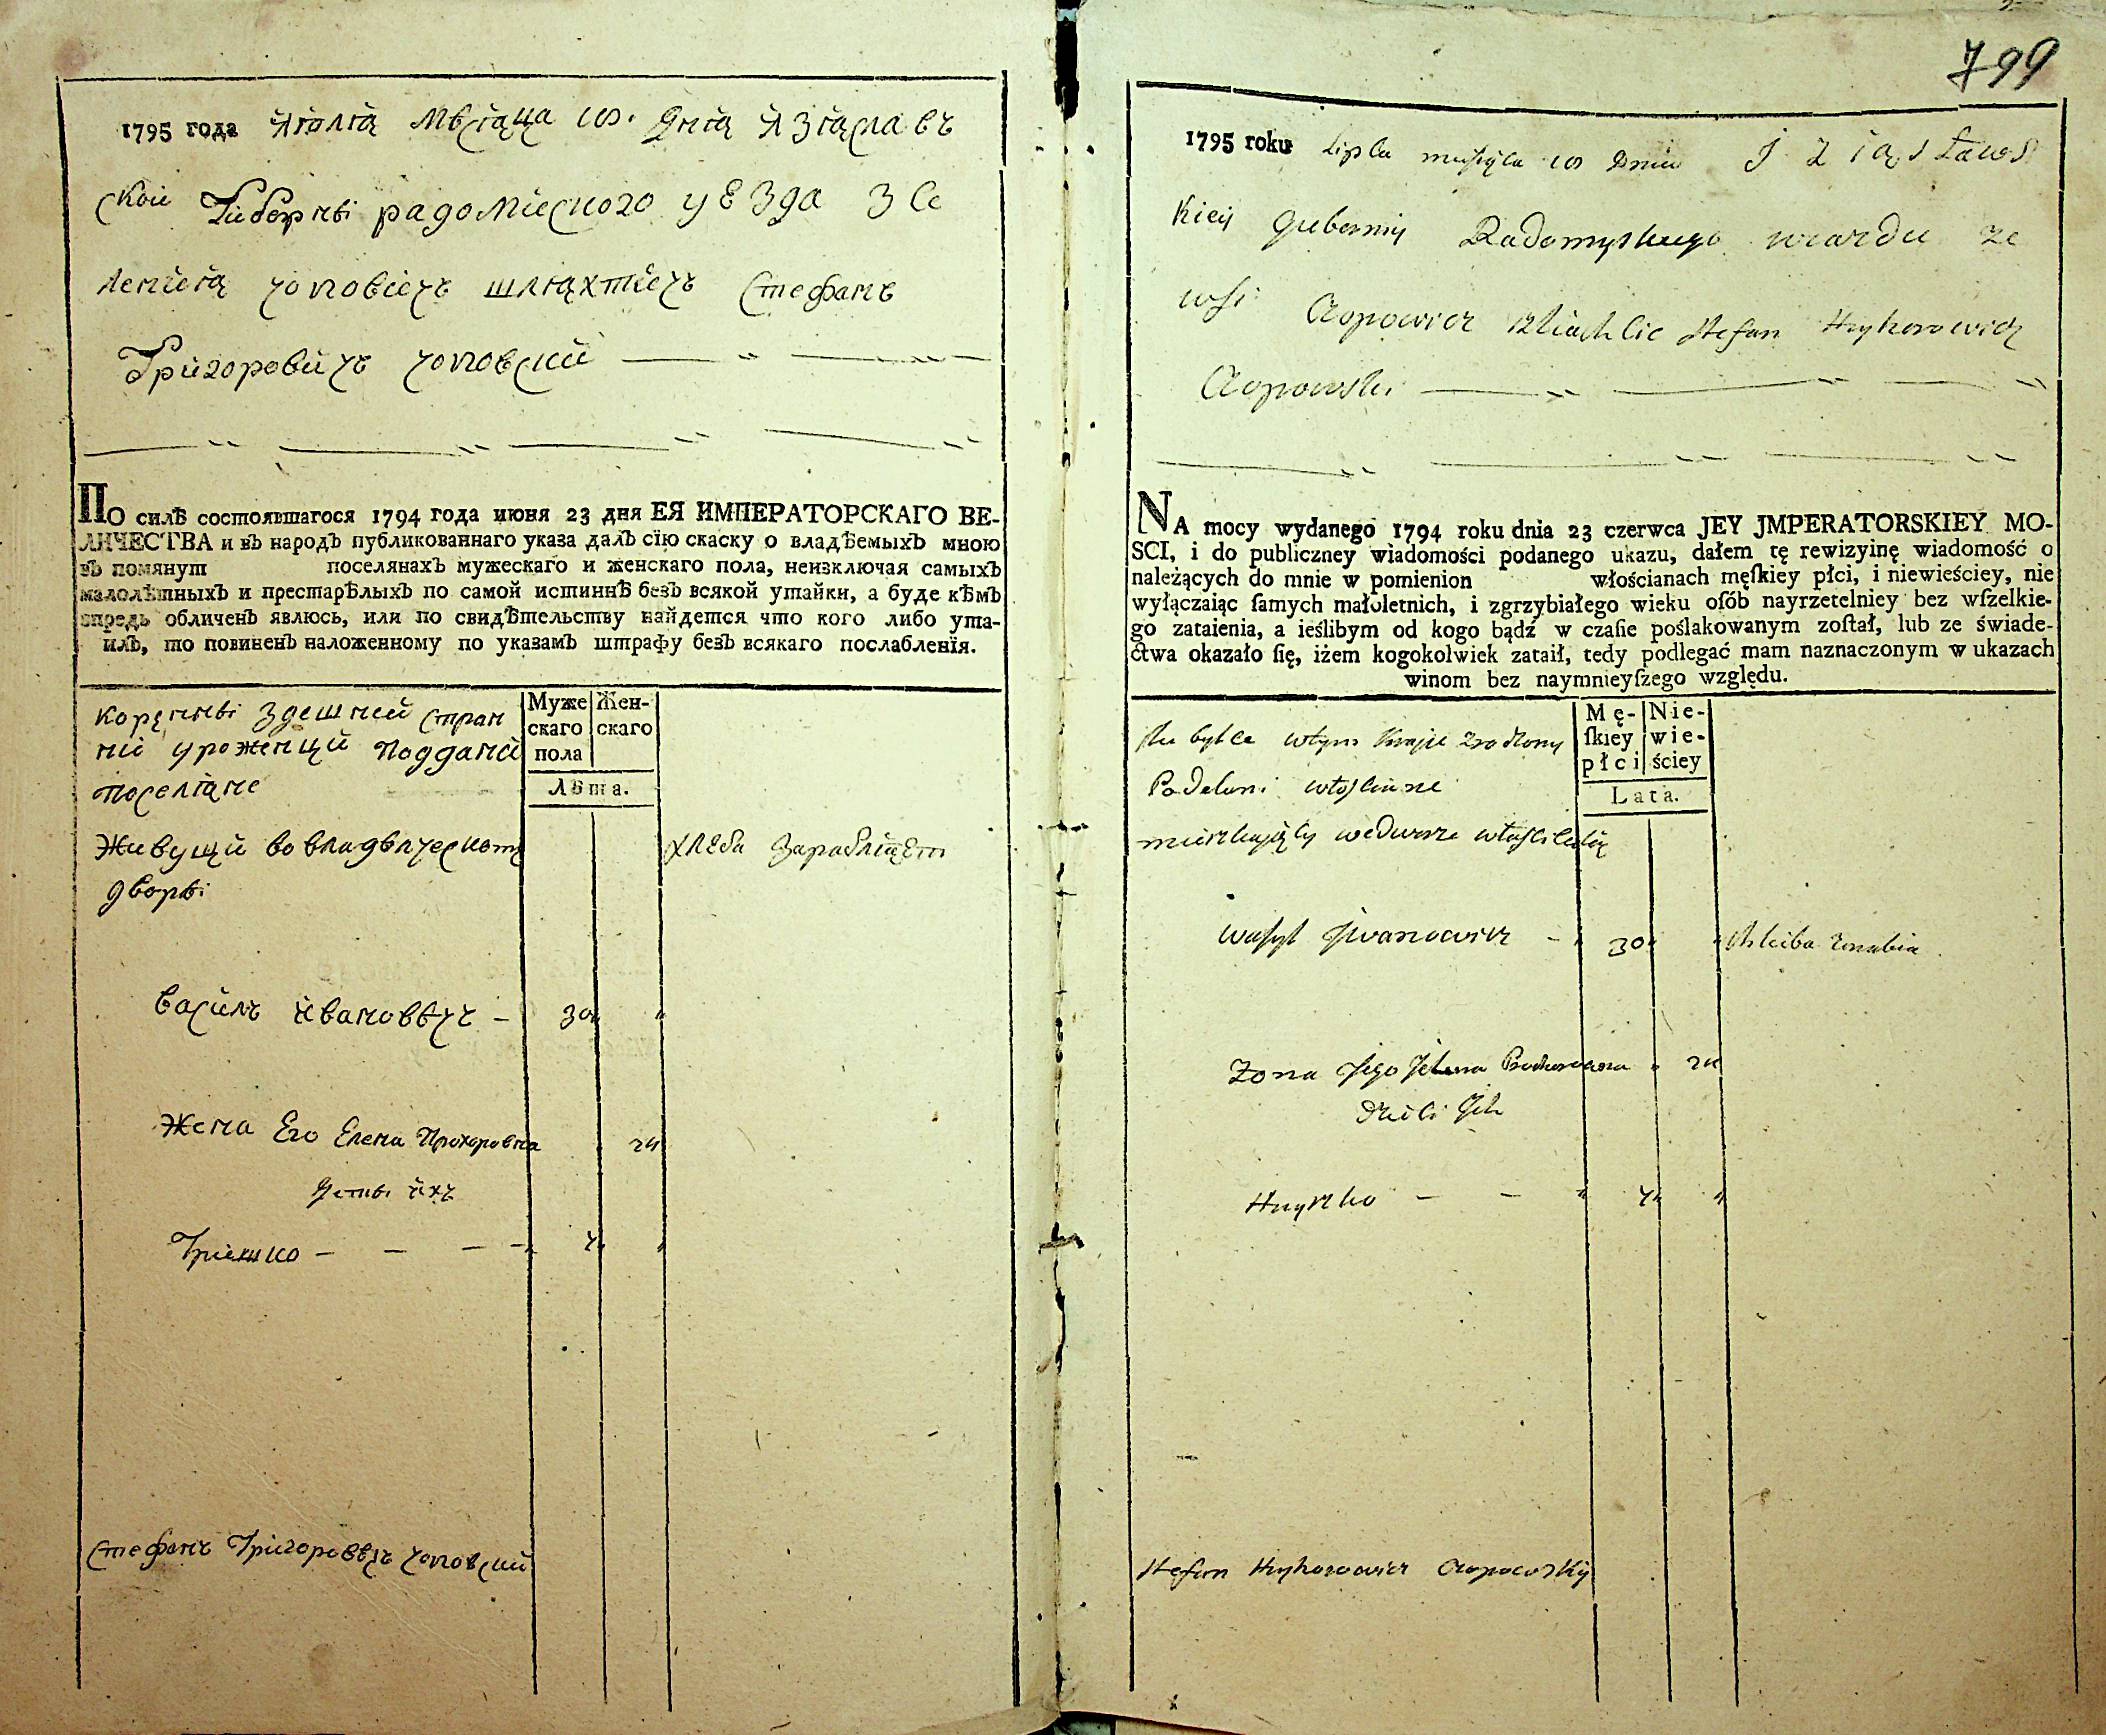 799
1795 года Июлія мѣсіаца дніа Изіаславъ
ской Губернѣі радомиского уезда з се
леніа шліахтичъ Стефанъ
Григоровичъ чоповский
ПО силѣ состоявшагося 1794 года июня 23 дня ЕЯ ИМПЕРАТОРСКАГО ВЕ-
ЛИЧЕСТВА и въ народъ публикованнаго указа далъ сїю скаску о владѣемыхъ мною
въ помянут поселянахъ мужескаго и женскаго пола, неизключая самыхъ
малолѣтныхъ и престарѣлыхъ по самой истиннѣ безъ всякой утайки, а буде кѣмъ
впредь обличенъ явлюсь, или по свидѣтельству найдется что кого либо ута-
илъ, то повиненъ наложенному по указамъ штрафу безъ всякаго послабленїя.
Муже скаго пола
Жен- скаго
Лѣта.
здешней стран
уроженци поддани
поселіане
Живущи во владѣлческомъ
дворѣ
хлеба зарабліает
Василъ Ивановичъ – 30
Жена Его Елена Прохоровна 24
Детѣ ихъ
Гришко – – – – 4
Стефанъ Григоровичъ чоповский
1795 roku Lipca dnia Iziąsławs
kiey Guberniy Radomyskiego ze
wsi Czopowicz szliachcic Stefan Hryhorowicz
Czopowski
NA mocy wydanego 1794 roku dnia 23 czerwca JEY JMPERATORSKIEY MO-
SCI, i do publiczney wiadomości podanego ukazu, dałem tę rewizyinę wiadomość o
należących do mnie w pomienion włościanach męſkiey płci, i niewieściey, nie
wyłączaiąc ſamych małoletnich, i zgrzybiałego wieku oſób nayrzetelniey bez wſzelkie-
go zataienia, a ieślibym od kogo bądź w czaſie poślakowanym zoſtał, lub ze świade-
ctwa okazało ſię, iżem kogokolwiek zataił, tedy podlegać mam naznaczonym w ukazach
winom bez naymnieyſzego względu.
Mę- ſkiey płci
Nie- wie- ściey
Lata.
wtym Kraju zrodzony
Poddani włoscianie
mieszkaiący wedworze
Wasyl Iwanowicz – 30 chleiba zarabia
Zona Jego Jelena Prochorowna 24
dzieci Jch
Hryszko – – 4
Stefan Hryhorowicz Czopowskij